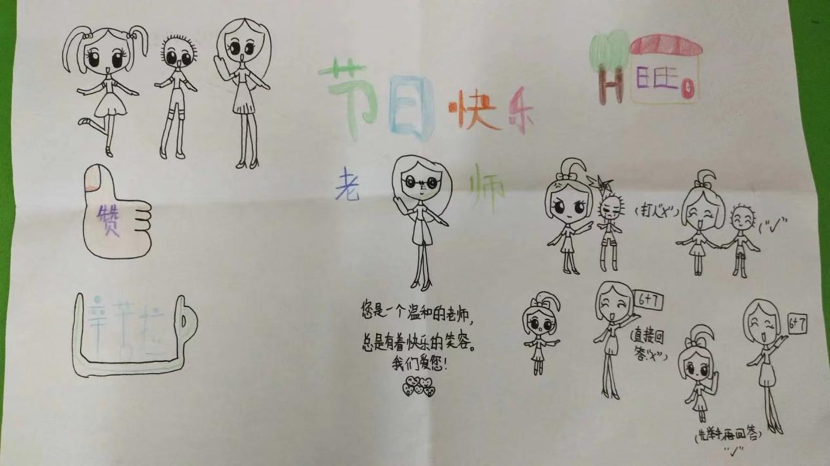 节日快乐
老师
赞
您是一个温和的老师,
总是有着快乐的笑容。
我们爱您!
(打人"×")
("√")
6+7
(直接回
答"×")
6+7
(先举手再回答)
"√"